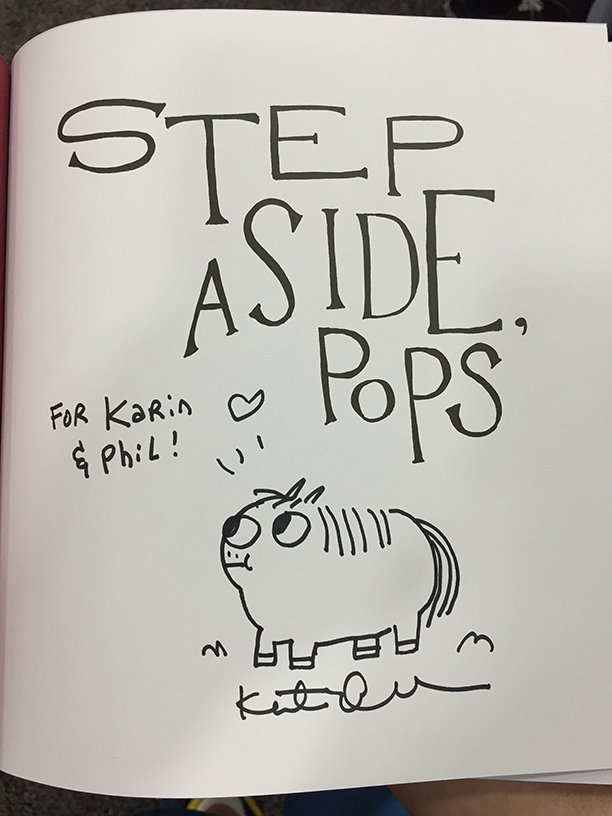 STEP
ASIDE,
POPS
FOR KARIN
& PHIL!